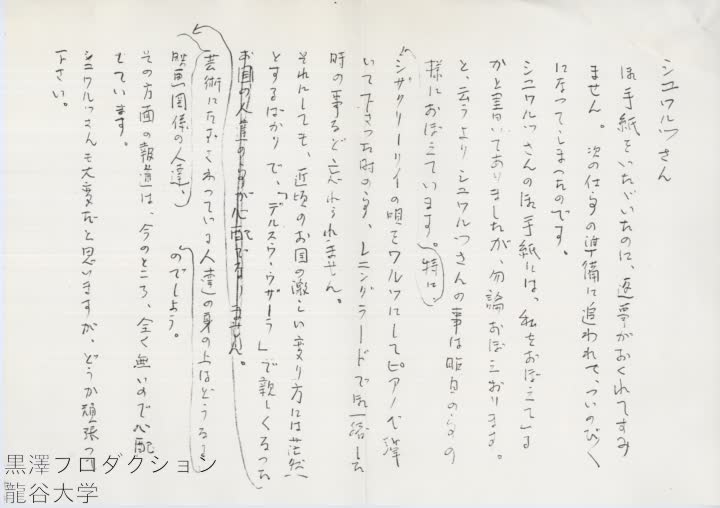 シュワルツさん
お手紙をいたゞいたのに、返事がおくれてすみ
ません。次の仕事の準備に追われて、ついのびのび
になってしまったのです。
シュワルツさんのお手紙には、私をおぼえている
かと書いてありましたが、勿論おぼえております。
と、云うよりシュワルツさんの事は昨日の事の
様におぼえています。特に、
シザクリーリイの唄をワルツにしてピアノで弾
いて下さった時の事、レニングラードでお一緒した
時の事など忘れられません。
それにしても、近頃のお国の激しい変り方には茫然
とするばかりで、「デルスウ・ウザーラ」で親しくなった
お国の人達の事が心配でなりません。
芸術にたずさわっている人達の身の上はどうなる
映画関係の人達、
のでしょう。
その方面の報道は、今のところ、全く無いので心配
しています。
シュワルツさんも大変だと思いますが、どうか頑張って
下さい。
黒澤プロダクション
龍谷大学